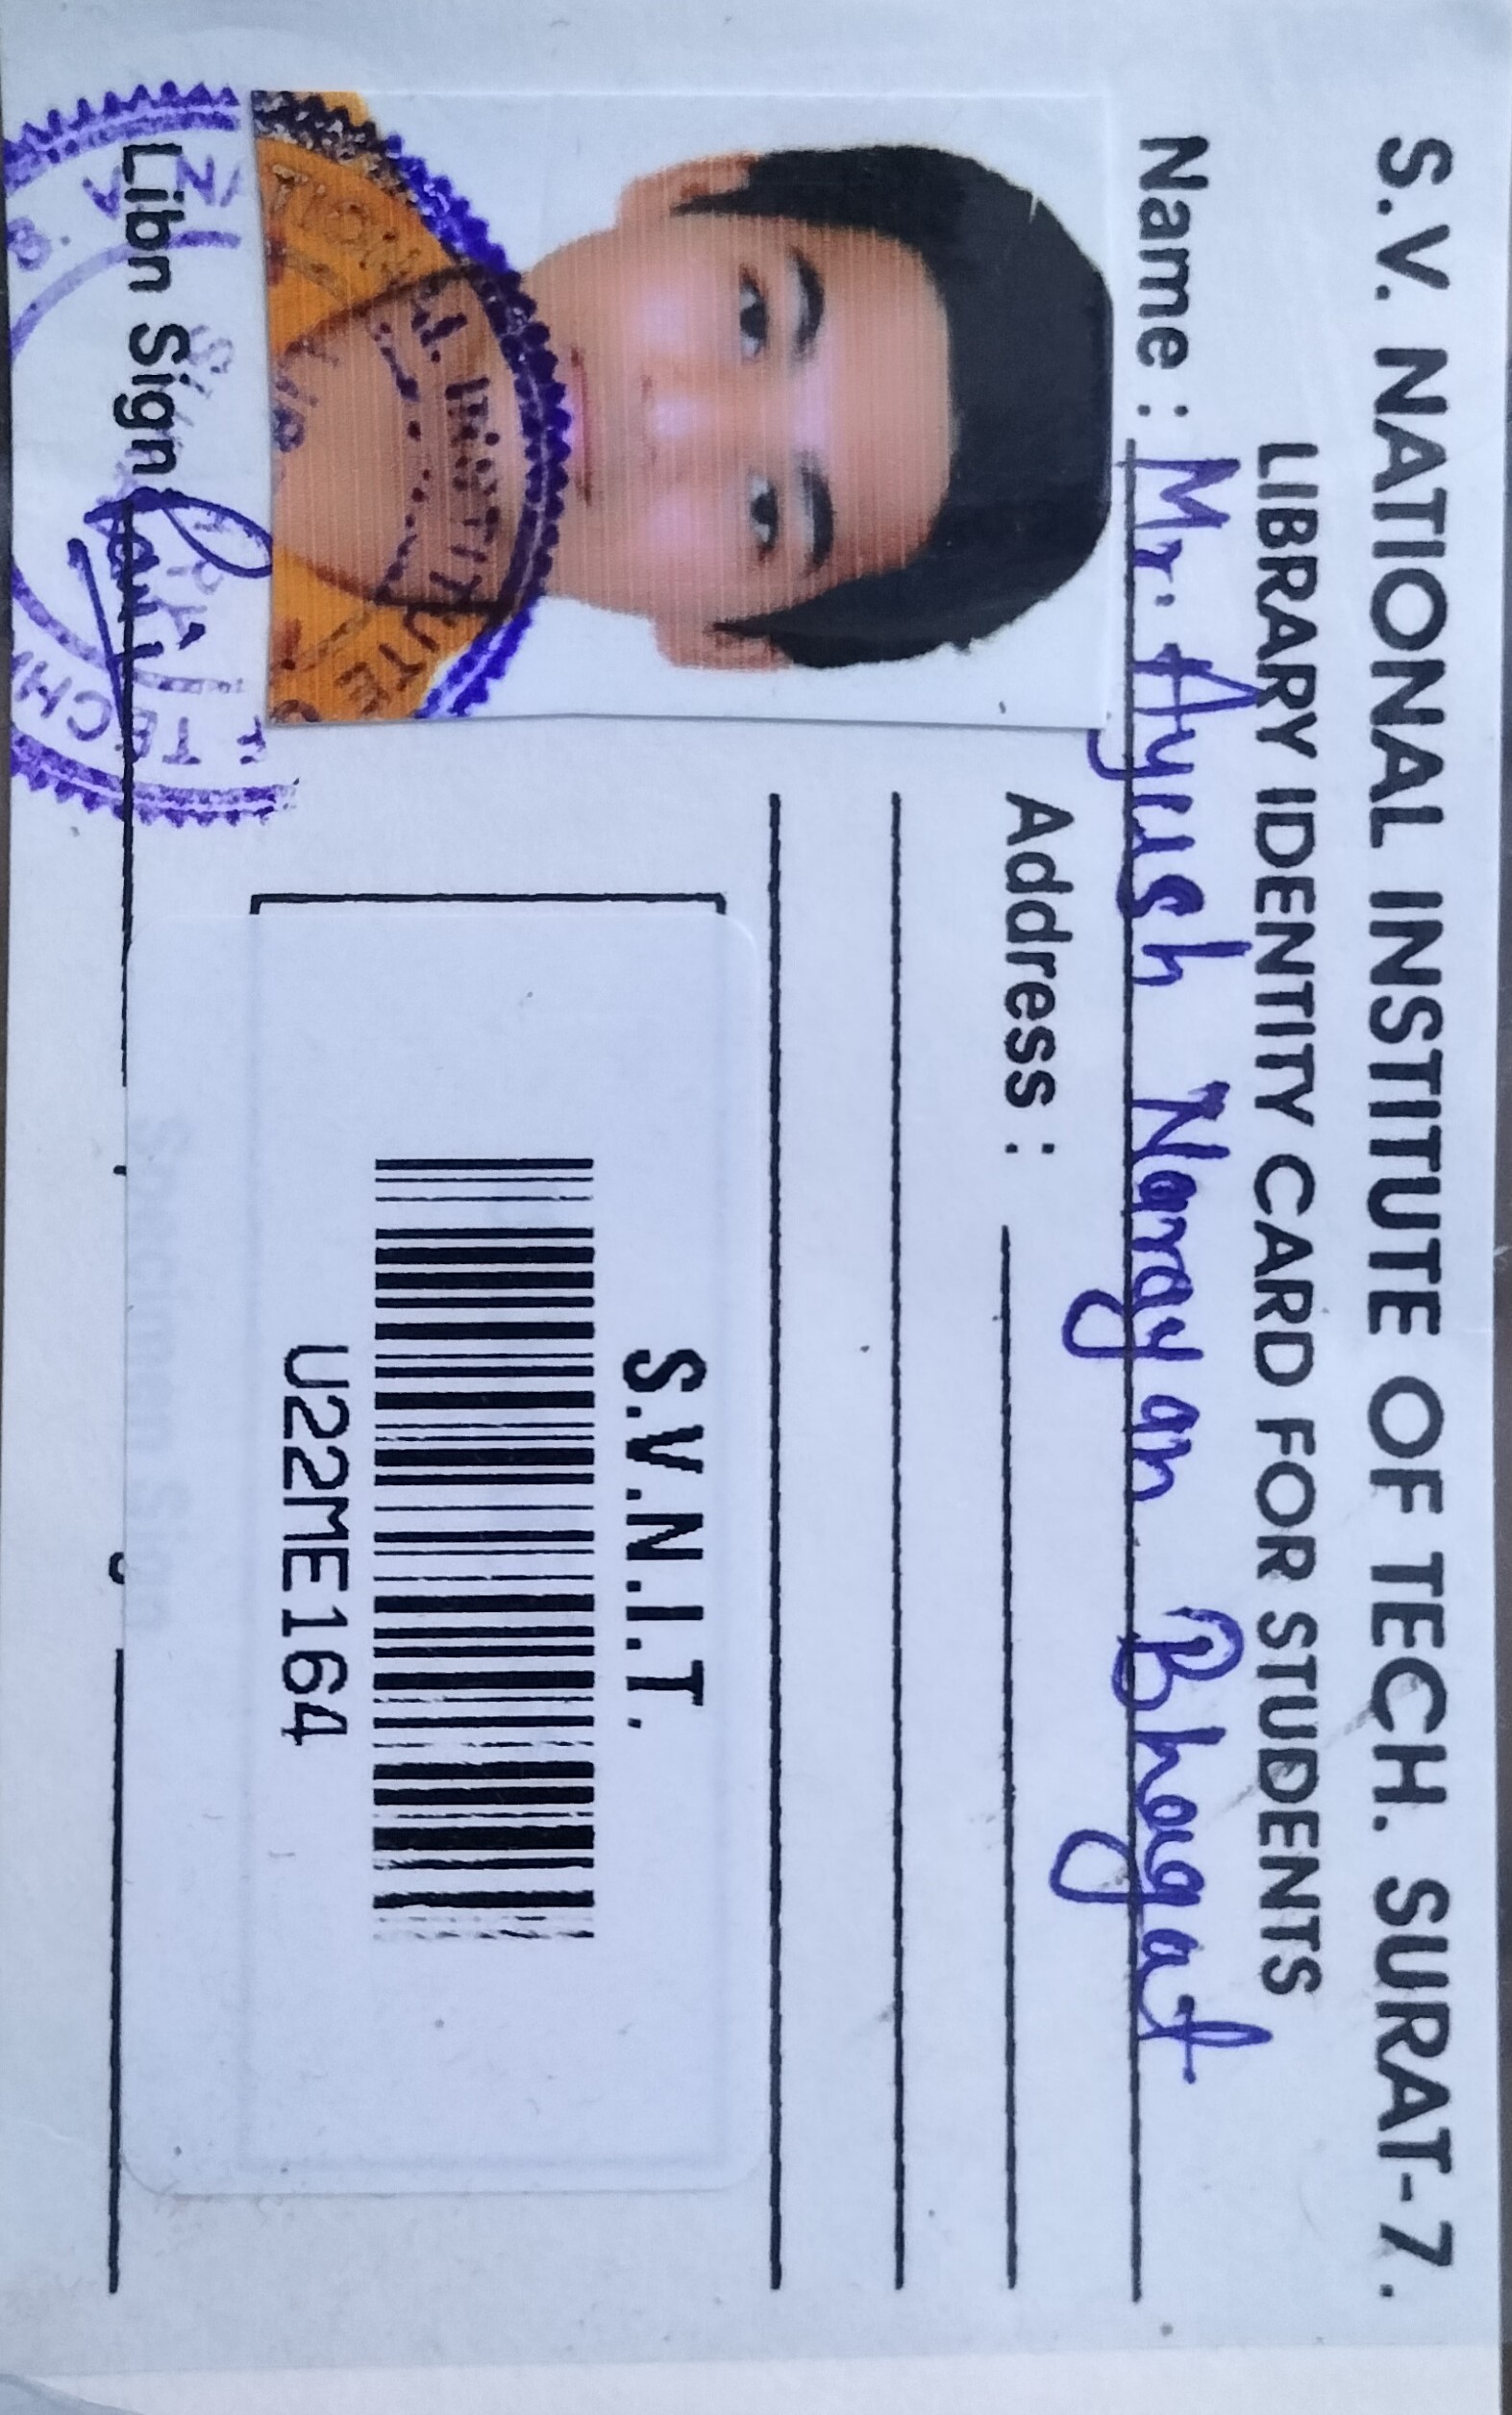 S.V. NATIONAL INSTITUTE OF TECH. SURAT-7.
LIBRARY IDENTITY CARD FOR STUDENTS
Name : Mr. Ayush Narayan Bhagat
Address :
S.V.N.I.T.
U22ME164
Specimen Sign
Libn Sign